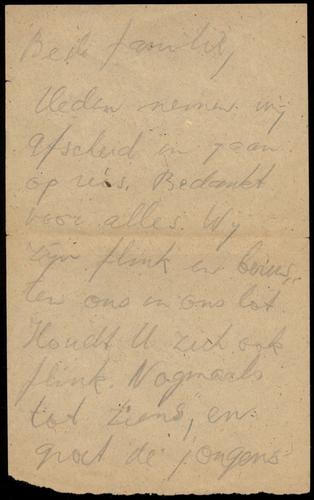 Beste familie,
Heden nemen wij
afscheid en gaan
op reis. Bedankt
voor alles. Wij
zijn flink en berus-
ten ons in ons lot.
Houdt U zich ook
flink. Nogmaals
tot ziens, en
groet de jongens